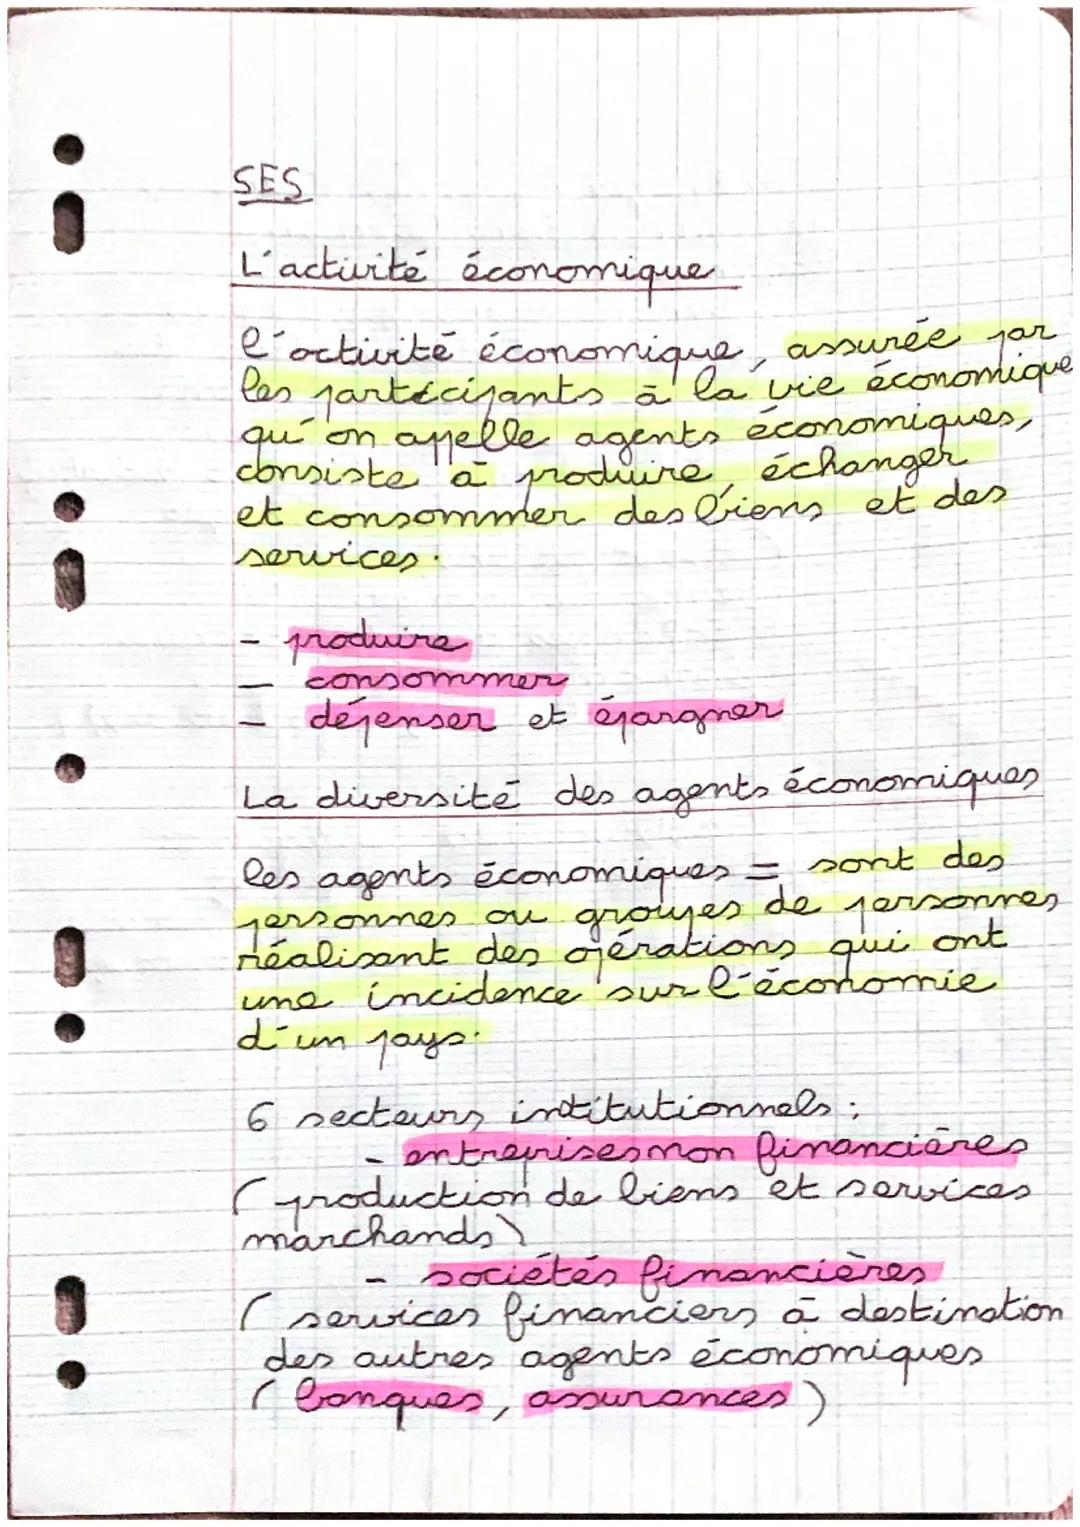 SES
L'activité économique
l'activité économique, assurée par
les participants à la vie économique
qu'on appelle agents économiques,
consiste à produire, échanger
et consommer des biens et des
services.
- produire
- consommer
- dépenser et épargner
La diversité des agents économiques
les agents économiques = sont des
personnes ou groupes de personnes
réalisant des opérations qui ont
une incidence sur l'économie
d'un pays.
6 secteurs intitutionnels :
- entreprises non financières
( production de biens et services
marchands )
- sociétés financières
( services financiers à destination
des autres agents économiques
( banques, assurances )